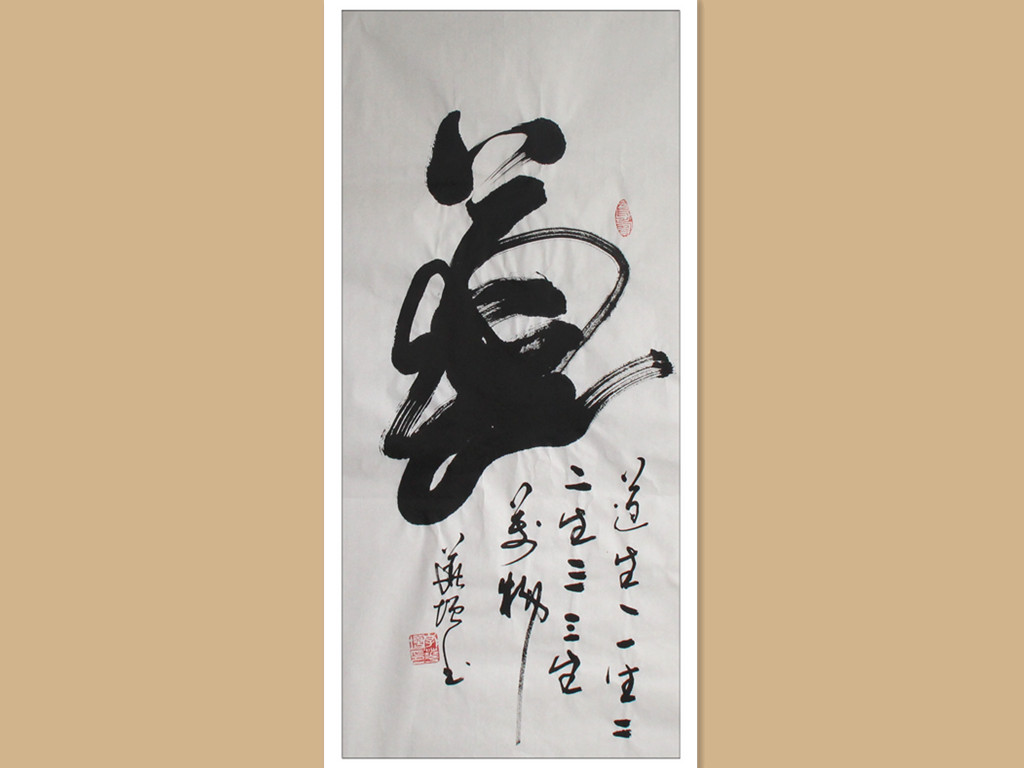 道
道生一一生二
二生三三生
萬物
书